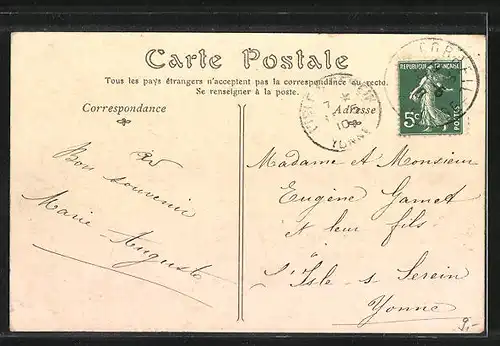 Carte Postale
Tous les pays étrangers n'acceptent pas la correspondance au recto.
Se renseigner à la poste.
Correspondance
Adresse
RÉPUBLIQUE FRANÇAISE
5c
POSTES
CORBEIL
YONNE
10
Bon souvenir
Marie-Auguste
Madame et Monsieur
Eugène Gamet
et leur fils
à
l'Isle s Serein
Yonne
9,-